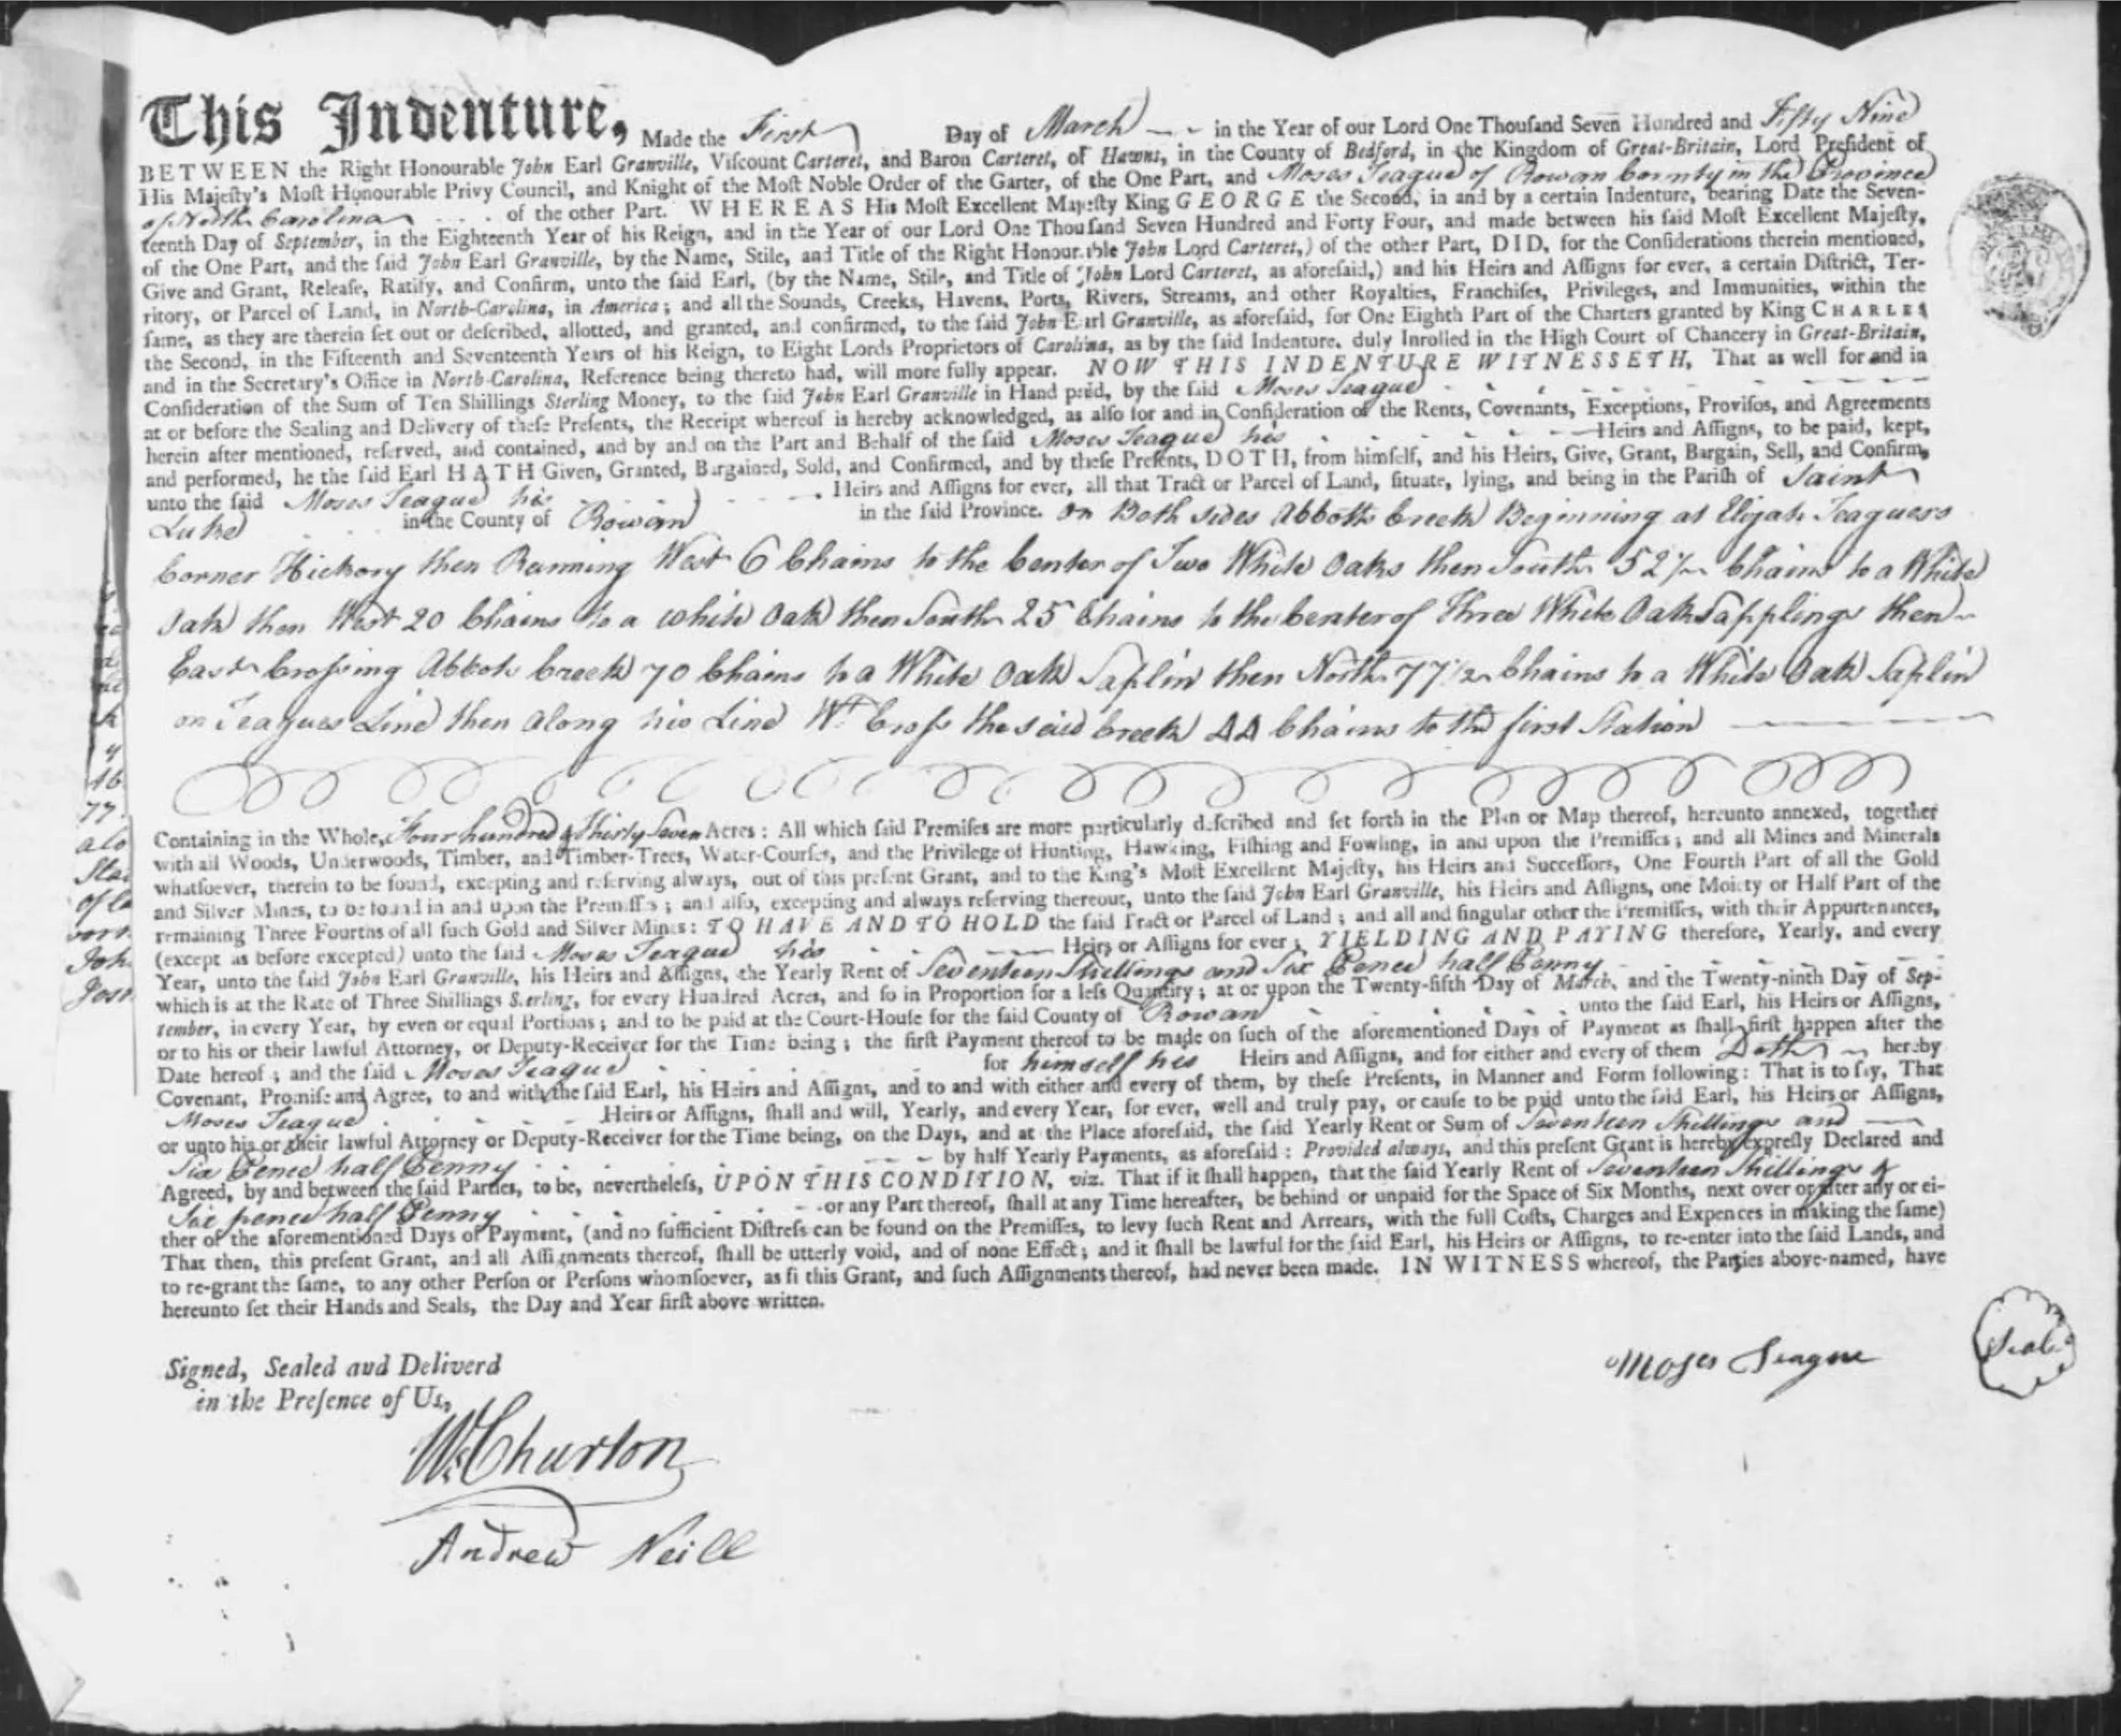 This Indenture, Made the First Day of March in the Year of our Lord One Thouſand Seven Hundred and Fifty Nine
BETWEEN the Right Honourable John Earl Granville, Viſcount Carteret, and Baron Carteret, of Hawns, in the County of Bedford, in the Kingdom of Great-Britain, Lord Preſident of
His Majeſty's Moſt Honourable Privy Council, and Knight of the Moſt Noble Order of the Garter, of the One Part, and Moses Teague of Rowan County in the Province
of North Carolina of the other Part. WHEREAS His Moſt Excellent Majeſty King GEORGE the Second, in and by a certain Indenture, bearing Date the Seven-
teenth Day of September, in the Eighteenth Year of his Reign, and in the Year of our Lord One Thouſand Seven Hundred and Forty Four, and made between his ſaid Moſt Excellent Majeſty,
of the One Part, and the ſaid John Earl Granville, by the Name, Stile, and Title of the Right Honourable John Lord Carteret,) of the other Part, DID, for the Conſiderations therein mentioned,
Give and Grant, Releaſe, Ratify, and Confirm, unto the ſaid Earl, (by the Name, Stile, and Title of John Lord Carteret, as aforeſaid,) and his Heirs and Aſſigns for ever, a certain Diſtrict, Ter-
ritory, or Parcel of Land, in North-Carolina, in America; and all the Sounds, Creeks, Havens, Ports, Rivers, Streams, and other Royalties, Franchiſes, Privileges, and Immunities, within the
ſame, as they are therein ſet out or deſcribed, allotted, and granted, and confirmed, to the ſaid John Earl Granville, as aforeſaid, for One Eighth Part of the Charters granted by King CHARLES
the Second, in the Fifteenth and Seventeenth Years of his Reign, to Eight Lords Proprietors of Carolina, as by the ſaid Indenture, duly Inrolled in the High Court of Chancery in Great-Britain,
and in the Secretary's Office in North-Carolina, Reference being thereto had, will more fully appear. NOW THIS INDENTURE WITNESSETH, That as well for and in
Conſideration of the Sum of Ten Shillings Sterling Money, to the ſaid John Earl Granville in Hand paid, by the ſaid Moses Teague
at or before the Sealing and Delivery of theſe Preſents, the Receipt whereof is hereby acknowledged, as alſo for and in Conſideration of the Rents, Covenants, Exceptions, Proviſos, and Agreements
herein after mentioned, reſerved, and contained, and by and on the Part and Behalf of the ſaid Moses Teague his Heirs and Aſſigns, to be paid, kept,
and performed, he the ſaid Earl HATH Given, Granted, Bargained, Sold, and Confirmed, and by theſe Preſents, DOTH, from himſelf, and his Heirs, Give, Grant, Bargain, Sell, and Confirm,
unto the ſaid Moses Teague his Heirs and Aſſigns for ever, all that Tract or Parcel of Land, ſituate, lying, and being in the Pariſh of Saint
Luke in the County of Rowan in the ſaid Province. On Both sides Abbotts Creek Beginning at Elijah Teaguers
Corner Hickory then Running West 6 Chains to the Center of Two White Oaks then South 52½ Chains to a White
Oak then West 20 Chains to a white Oak then South 25 Chains to the Center of Three White Oak Sapplings then
East Croſsing Abbots Creek 70 Chains to a White Oak Saplin then North 77½ Chains to a White Oak Saplin
on Teagues Line then along his Line Wt. Croſs the said Creek 44 Chains to the first Station
Containing in the Whole, Four hundred & Thirty Seven Acres: All which ſaid Premiſes are more particularly deſcribed and ſet forth in the Plan or Map thereof, hereunto annexed, together
with all Woods, Underwoods, Timber, and Timber-Trees, Water-Courſes, and the Privilege of Hunting, Hawking, Fiſhing and Fowling, in and upon the Premiſſes; and all Mines and Minerals
whatſoever, therein to be found, excepting and reſerving always, out of this preſent Grant, and to the King's Moſt Excellent Majeſty, his Heirs and Succeſſors, One Fourth Part of all the Gold
and Silver Mines, to be found in and upon the Premiſſes; and alſo, excepting and always reſerving thereout, unto the ſaid John Earl Granville, his Heirs and Aſſigns, one Moiety or Half Part of the
remaining Three Fourths of all ſuch Gold and Silver Mines: TO HAVE AND TO HOLD the ſaid Tract or Parcel of Land; and all and ſingular other the Premiſſes, with their Appurtenances,
(except as before excepted) unto the ſaid Moses Teague his Heirs or Aſſigns for ever; YIELDING AND PAYING therefore, Yearly, and every
Year, unto the ſaid John Earl Granville, his Heirs and Aſſigns, the Yearly Rent of Seventeen Shillings and Six Pence half Penny
which is at the Rate of Three Shillings Sterling, for every Hundred Acres, and ſo in Proportion for a leſs Quantity; at or upon the Twenty-fifth Day of March, and the Twenty-ninth Day of Sep-
tember, in every Year, by even or equal Portions; and to be paid at the Court-Houſe for the ſaid County of Rowan unto the ſaid Earl, his Heirs or Aſſigns,
or to his or their lawful Attorney, or Deputy-Receiver for the Time being; the firſt Payment thereof to be made on ſuch of the aforementioned Days of Payment as ſhall firſt happen after the
Date hereof; and the ſaid Moses Teague for himself his Heirs and Aſſigns, and for either and every of them Doth hereby
Covenant, Promiſe and Agree, to and with the ſaid Earl, his Heirs and Aſſigns, and to and with either and every of them, by theſe Preſents, in Manner and Form following: That is to ſay, That
Moses Teague Heirs or Aſſigns, ſhall and will, Yearly, and every Year, for ever, well and truly pay, or cauſe to be paid unto the ſaid Earl, his Heirs or Aſſigns,
or unto his or their lawful Attorney or Deputy-Receiver for the Time being, on the Days, and at the Place aforeſaid, the ſaid Yearly Rent or Sum of Seventeen Shillings and
Six Pence half Penny by half Yearly Payments, as aforeſaid: Provided always, and this preſent Grant is hereby expreſly Declared and
Agreed, by and between the ſaid Parties, to be, nevertheleſs, UPON THIS CONDITION, viz. That if it ſhall happen, that the ſaid Yearly Rent of Seventeen Shillings &
Six pence half Penny or any Part thereof, ſhall at any Time hereafter, be behind or unpaid for the Space of Six Months, next over or after any or ei-
ther of the aforementioned Days of Payment, (and no ſufficient Diſtreſs can be found on the Premiſſes, to levy ſuch Rent and Arrears, with the full Coſts, Charges and Expences in making the ſame)
That then, this preſent Grant, and all Aſſignments thereof, ſhall be utterly void, and of none Effect; and it ſhall be lawful for the ſaid Earl, his Heirs or Aſſigns, to re-enter into the ſaid Lands, and
to re-grant the ſame, to any other Perſon or Perſons whomſoever, as fi this Grant, and ſuch Aſſignments thereof, had never been made. IN WITNESS whereof, the Parties above-named, have
hereunto ſet their Hands and Seals, the Day and Year firſt above written.
Signed, Sealed aud Deliverd
in the Preſence of Us,
Moſes Teague
Seal
Wm. Churton
Andrew Neill